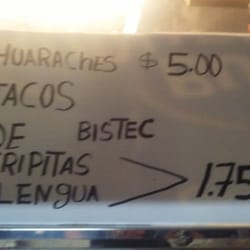 HUARACHES $5.00
TACOS
DE BISTEC
TRIPITAS > 1.75
LENGUA